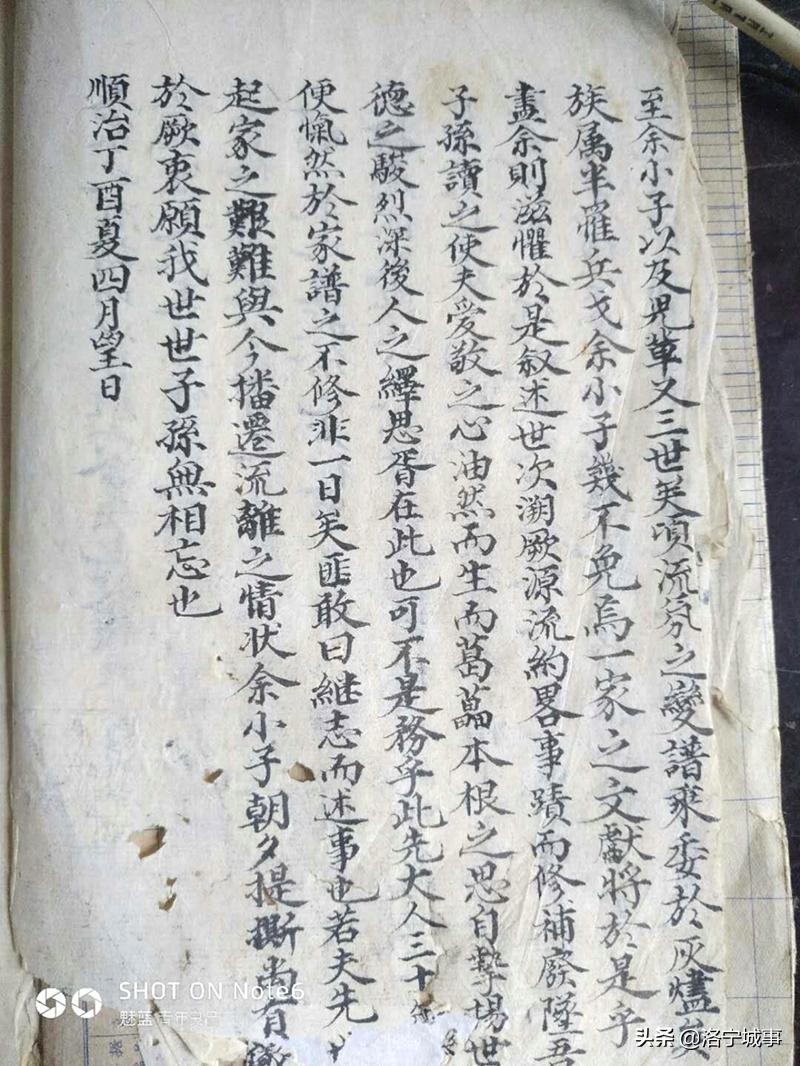 至余小子以及兒輩又三世矣頃流氛之變譜乘委於灰燼矣
族属半罹兵戈余小子幾不免焉一家之文獻將於是乎
盡余則滋懼於是叙述世次溯厥源流約畧事蹟而修補廢墜吾
子孫讀之使夫愛敬之心油然而生而葛藟本根之思自摯揚世
德之駿烈深後人之繹思胥在此也可不是務乎此先大人三十
便愾然於家譜之不修非一日矣匪敢曰継志而述事也若夫先
起家之艱難與今播遷流離之情状余小子朝夕提撕尚有
於厥衷願我世世子孫無相忘也
順治丁酉夏四月望日
SHOT ON Note6
魅蓝
头条 @洛宁城事